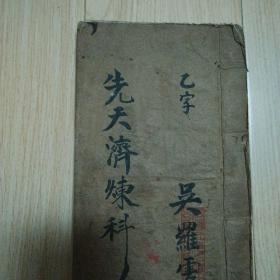 乙字
吳羅雲
先天濟煉科